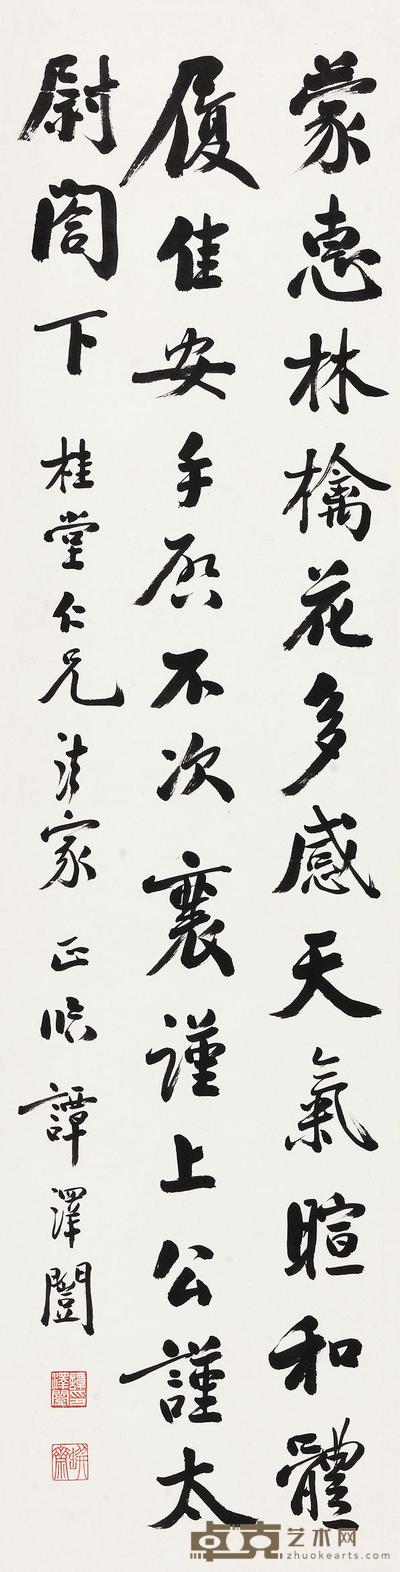 蒙惠林檎花多感天氣暄和體
履佳安手启不次襄謹上公謹太
尉閤下 桂堂仁兄法家正臨譚澤闓
卓克艺术网
zhuokearts.com